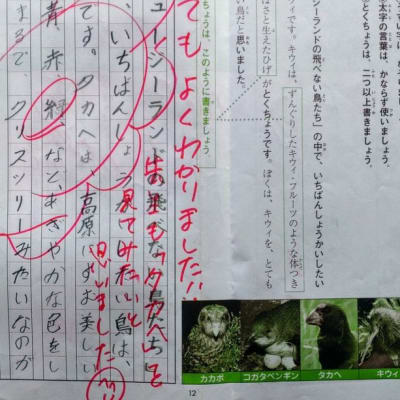 太字の言葉は、かならず使いましょう。
とくちょうは、二つ以上書きましょう。
ージーランドの飛べない鳥たち」の中で、いちばんしょうかいしたい
ウィです。キウィは、ずんぐりしたキウィ・フルーツのような体つき
さと生えたひげがとくちょうです。ぼくは、キウィを、とても
い鳥だと思いました。
ちょうは、このように書きましょう
てもよくわかりました!!
先生も「タカヘ」を
見てみたいと
思いました
ュージーランドの飛べない鳥たち」
、いちばんしょう
鳥は、
です。タカヘは、高原にすむ美しい
青、赤、緑、など、あざやかな色をし
まるで、クリスツリーみたいなのが
カカポ
コガタペンギン
タカヘ
キウィ
12